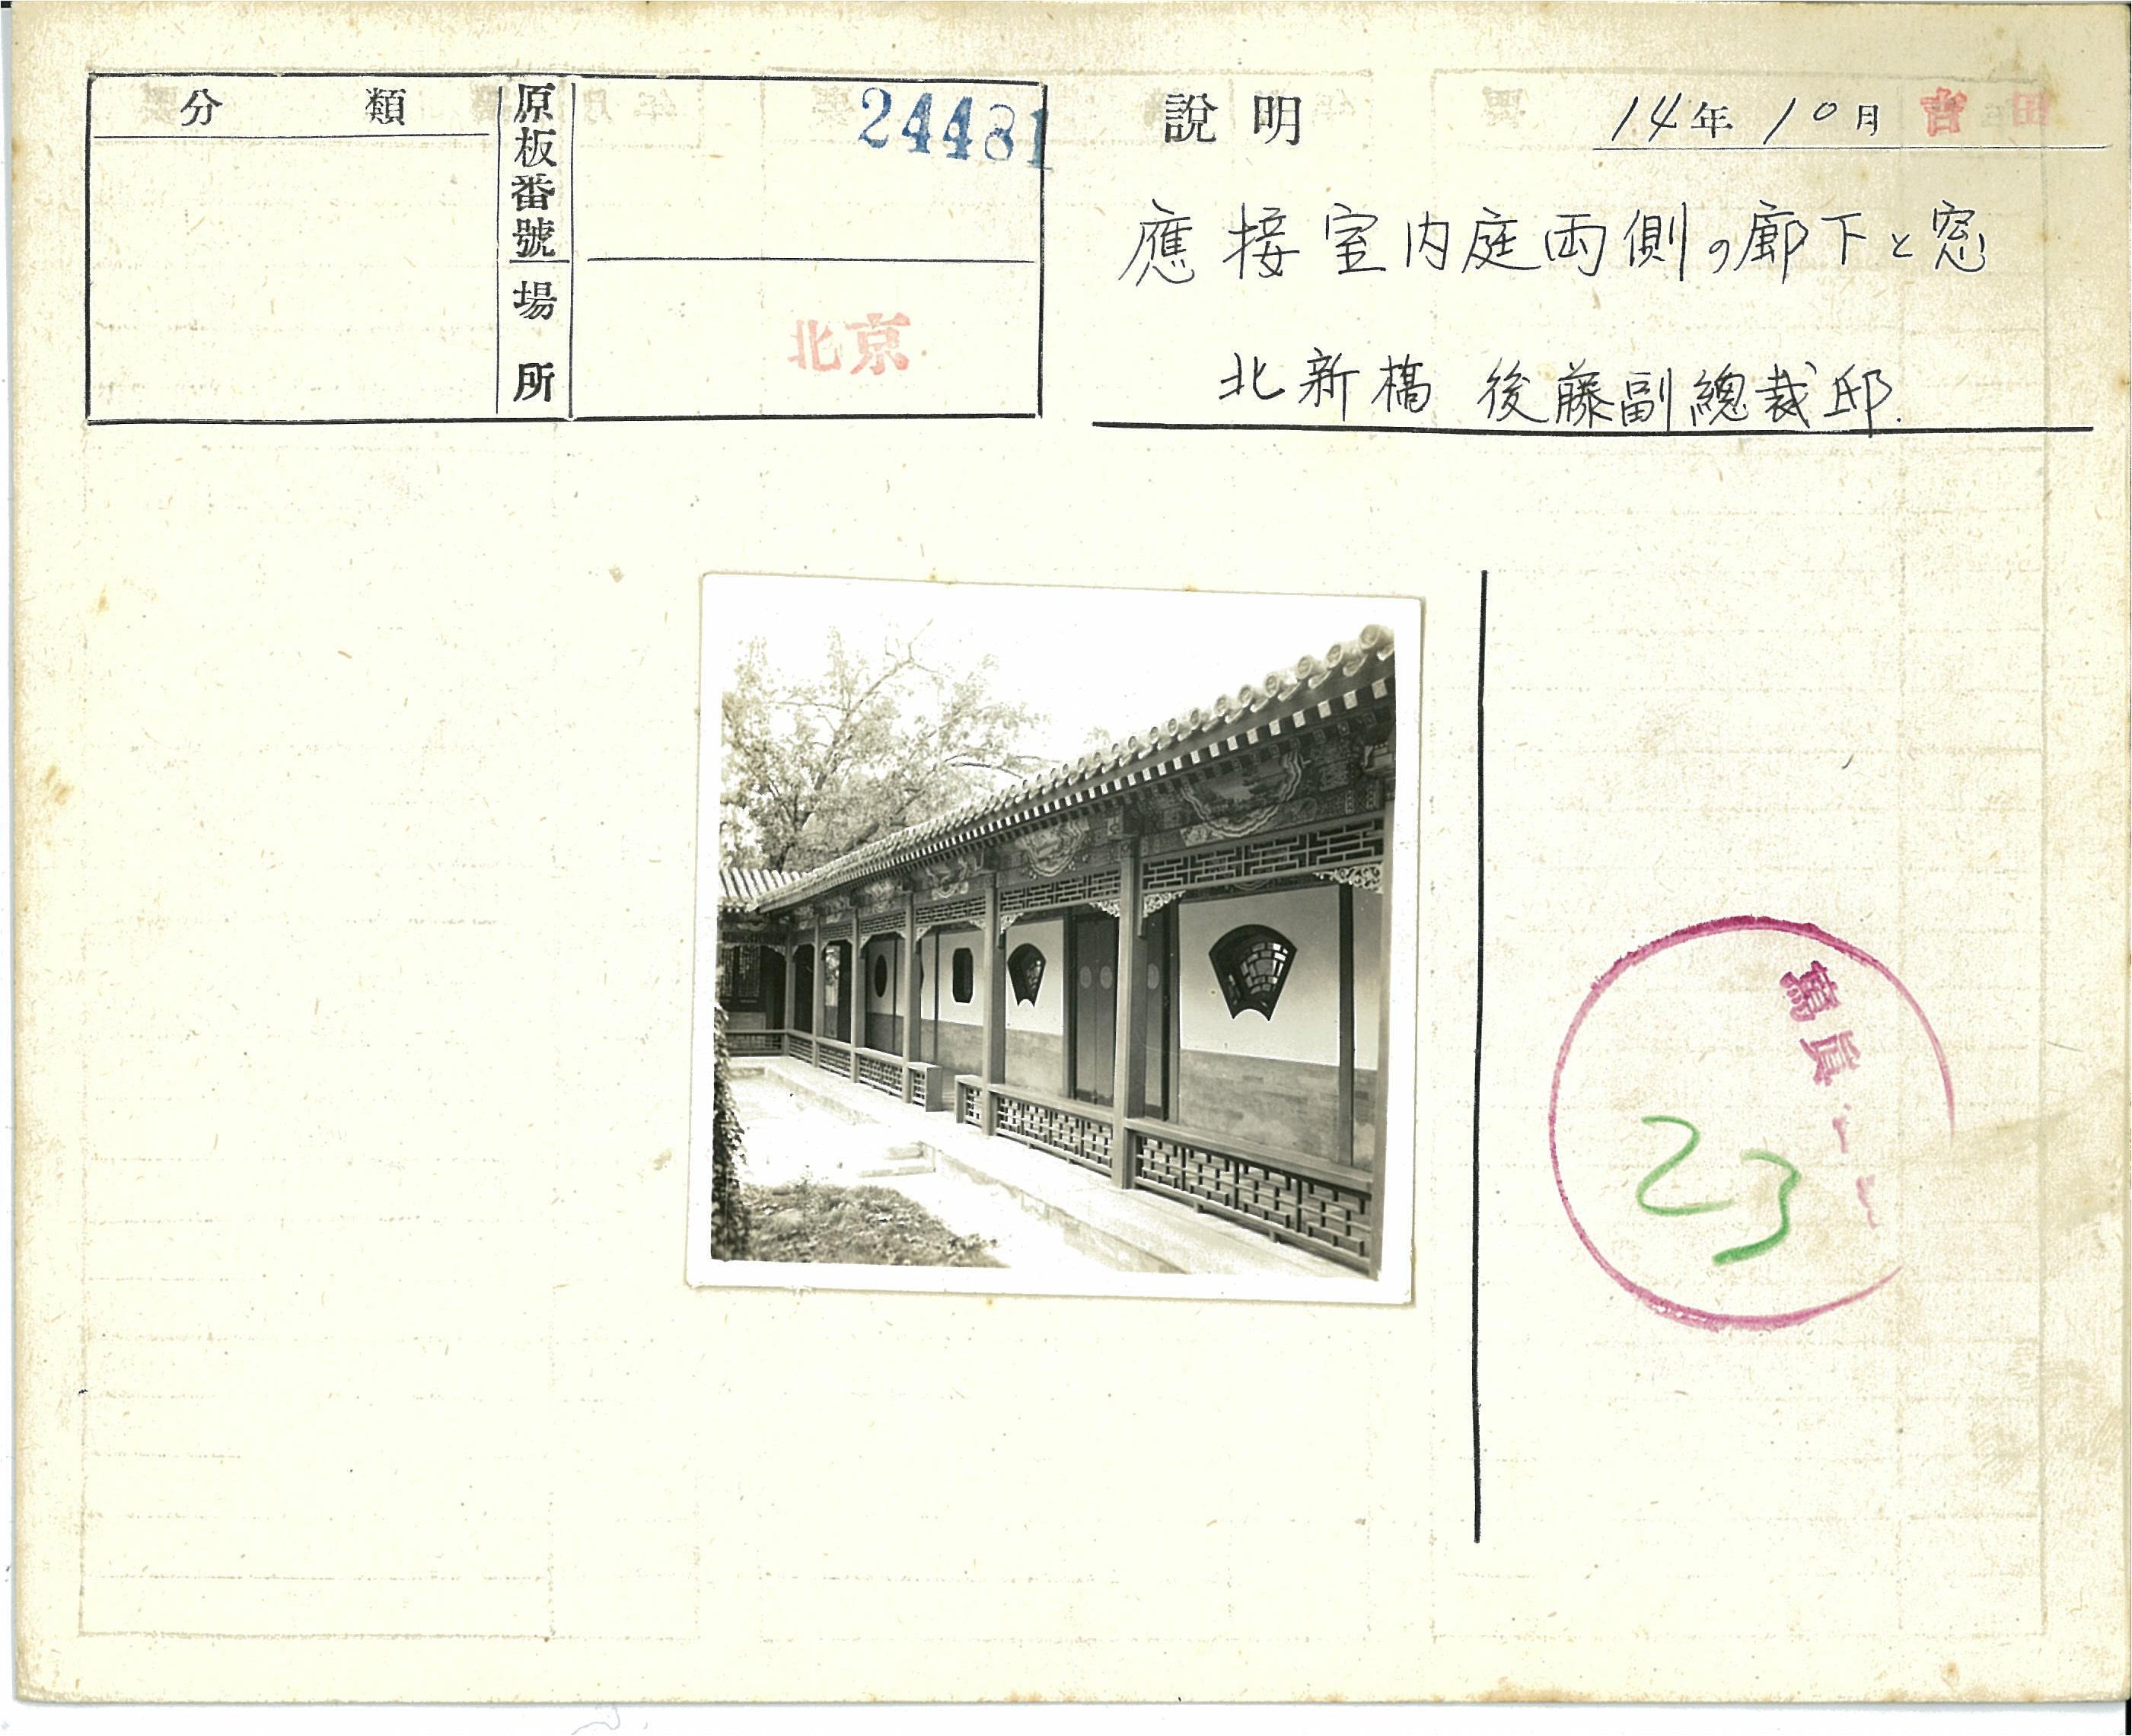 分類
原板番號
24481
場所
北京
説明
14年10月 吉田
應接室内庭両側の廊下と窓
北新橋 後藤副總裁邸.
23